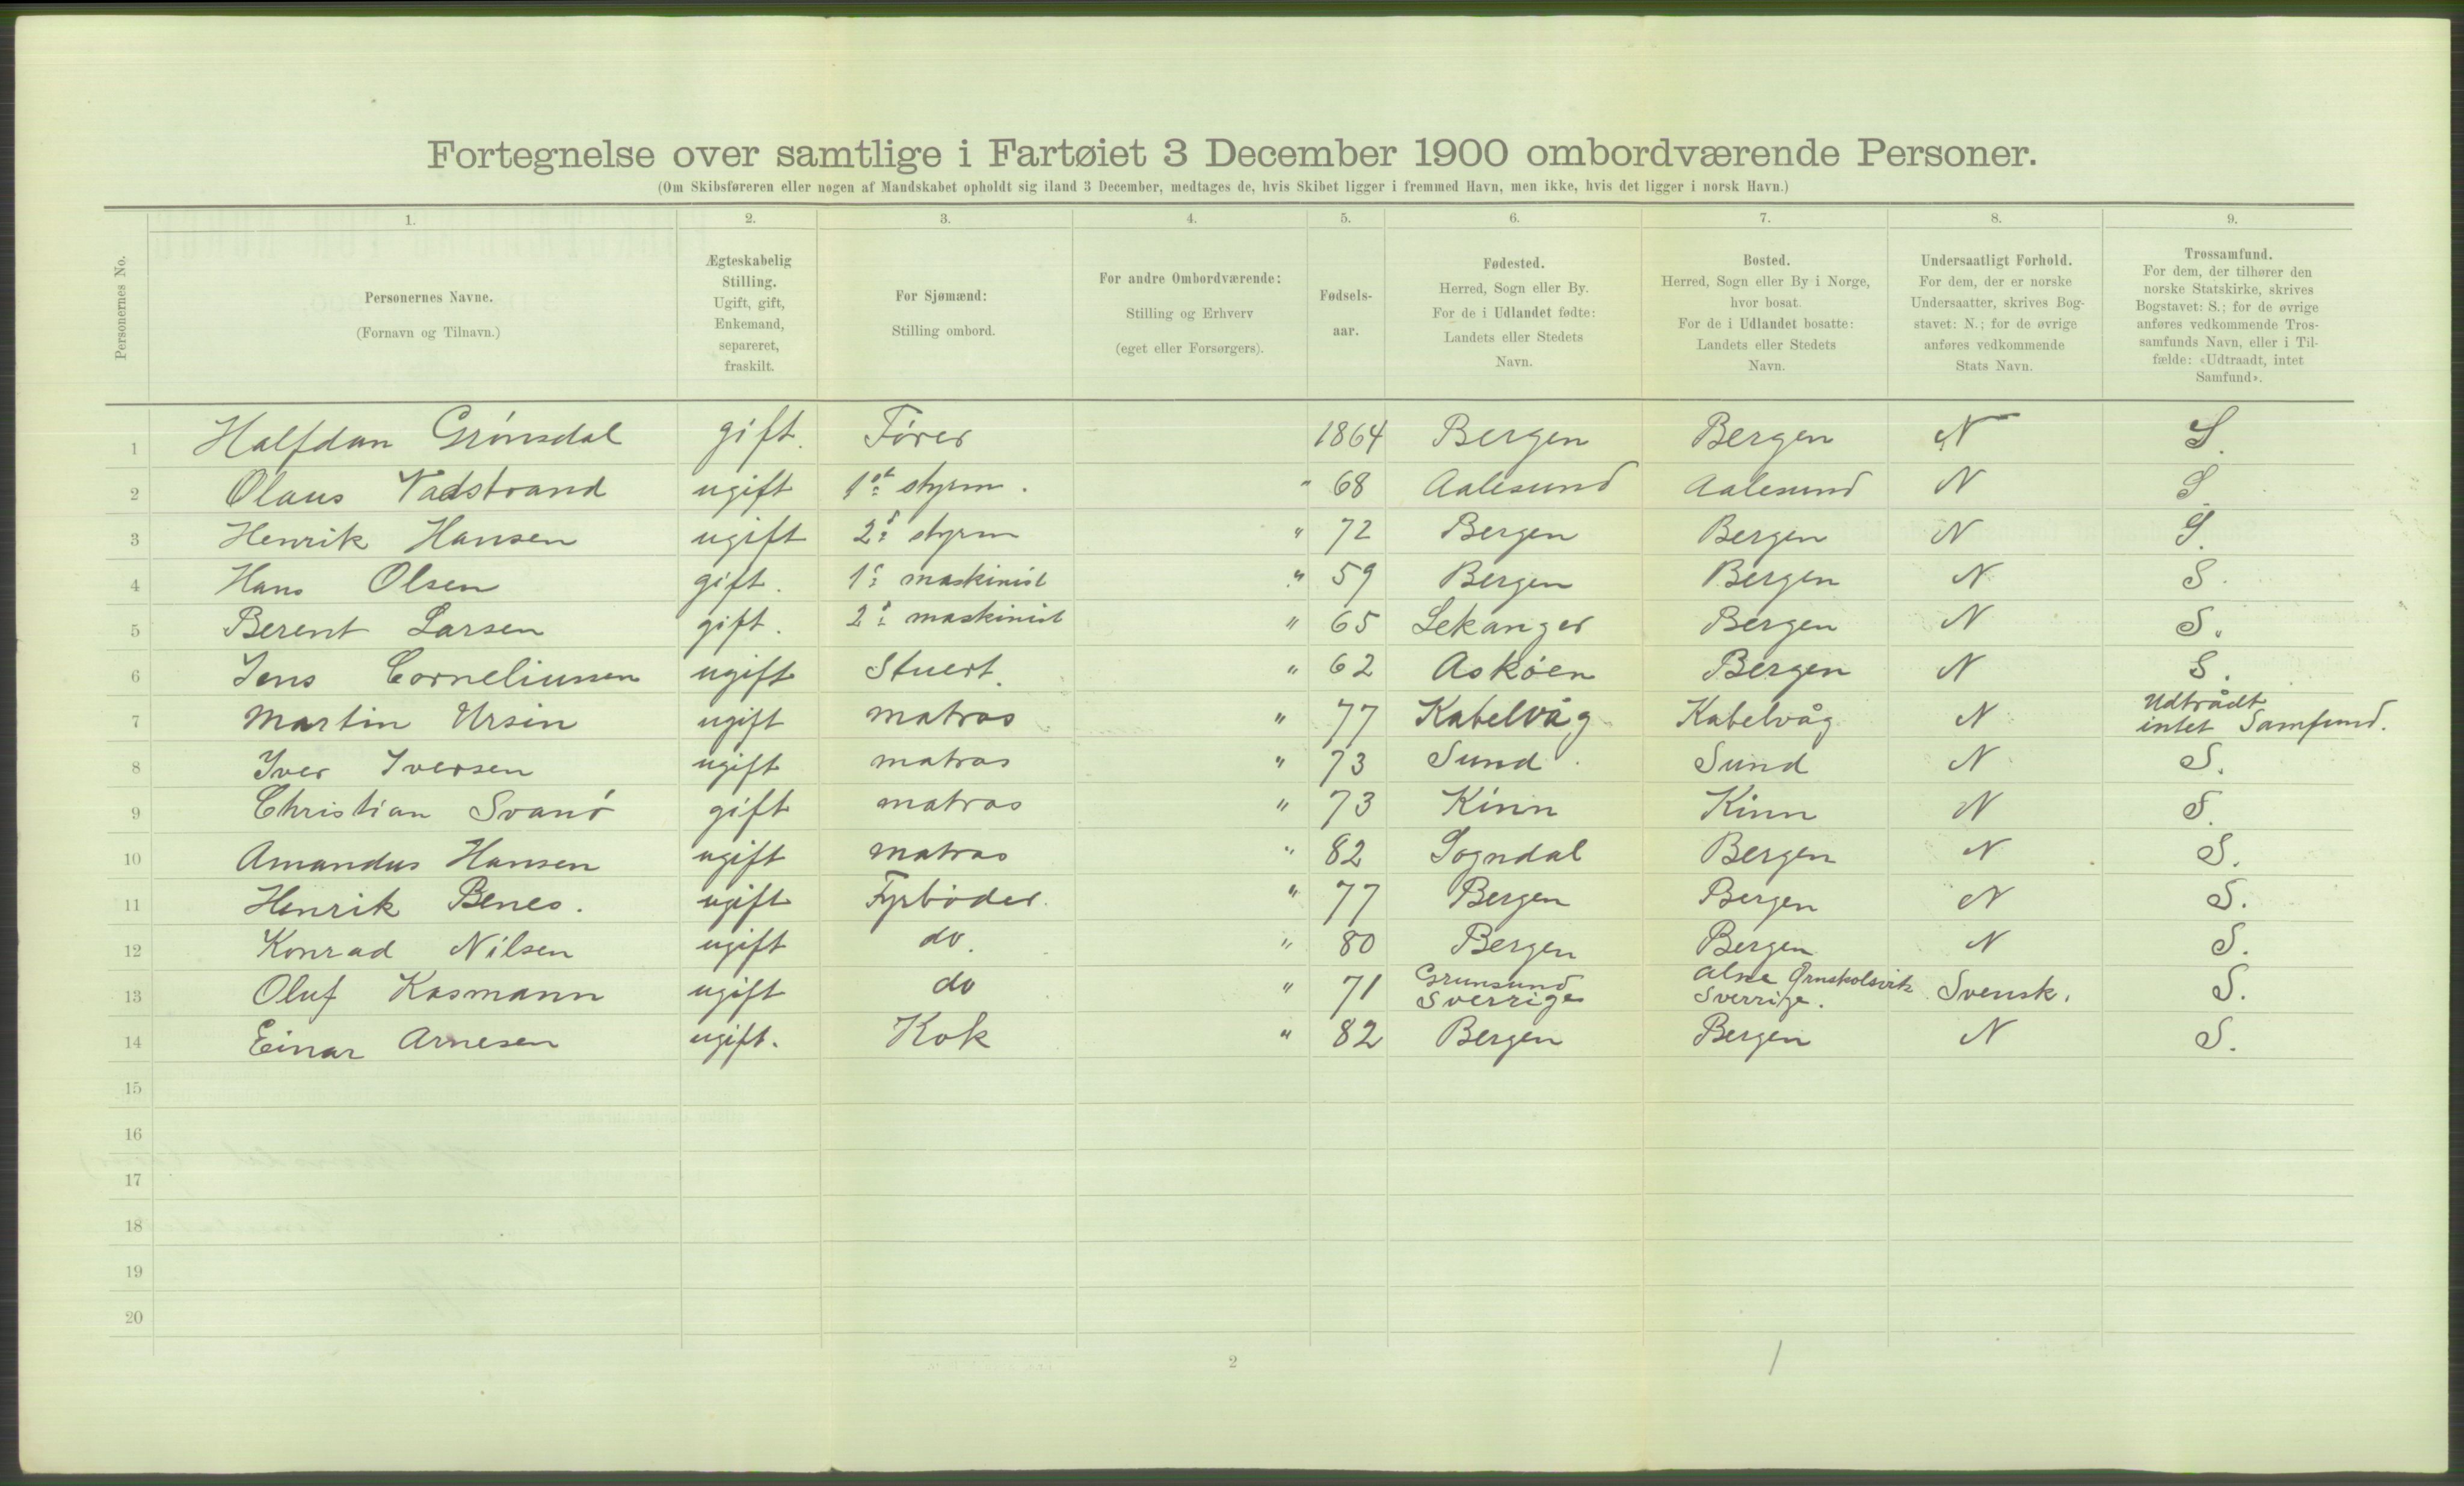 Fortegnelse over samtlige i Fartøiet 3 December 1900 ombordværende Personer.
(Om Skibsføreren eller nogen af Mandskabet opholdt sig iland 3 December, medtages de, hvis Skibet ligger i fremmed Havn, men ikke, hvis det ligger i norsk Havn.)
Personernes No.
1.
Personernes Navne.
(Fornavn og Tilnavn.)
2.
Ægteskabelig
Stilling.
Ugift, gift,
Enkemand,
separeret,
fraskilt.
3.
For Sjømænd:
Stilling ombord.
4.
For andre Ombordværende:
Stilling og Erhverv
(eget eller Forsørgers).
5.
Fødsels-
aar.
6.
Fødested.
Herred, Sogn eller By.
For de i Udlandet fødte:
Landets eller Stedets
Navn.
7.
Bosted.
Herred, Sogn eller By i Norge,
hvor bosat.
For de i Udlandet bosatte:
Landets eller Stedets
Navn.
8.
Undersaatligt Forhold.
For dem, der er norske
Undersaatter, skrives Bog-
stavet: N.; for de øvrige
anføres vedkommende
Stats Navn.
9.
Trossamfund.
For dem, der tilhører den
norske Statskirke, skrives
Bogstavet: S.; for de øvrige
anføres vedkommende Tros-
samfunds Navn, eller i Til-
fælde: «Udtraadt, intet
Samfund».
1 Halfdan Grönsdal gift. Fører 1864 Bergen Bergen N S.
2 Olaus Vadstrand ugift 1st styrm. " 68 Aalesund Aalesund N S.
3 Henrik Hansen ugift 2d styrm " 72 Bergen Bergen N S.
4 Hans Olsen gift. 1e maskinist " 59 Bergen Bergen N S.
5 Berent Larsen gift. 2d maskinist " 65 Lekanger Bergen N S.
6 Jens Corneliussen ugift Stuert. " 62 Asköen Bergen N S.
7 Martin Ursin ugift matros " 77 Kabelvåg Kabelvåg N Udtrådt
intet Samfund.
8 Iver Iversen ugift matros " 73 Sund Sund N S.
9 Christian Svanö gift matros " 73 Kinn Kinn N S.
10 Amandus Hansen ugift matros " 82 Sogndal Bergen N S.
11 Henrik Benes. ugift Fyrböder. " 77 Bergen Bergen N S.
12 Konrad Nilsen ugift do. " 80 Bergen Bergen N S.
13 Oluf Kasmann ugift do " 71 Grunsund Alne Örnskolsvik Svensk. S.
Sverrige Sverrige.
14 Einar Arnesen ugift. Kok " 82 Bergen Bergen N S.
15
16
17
18
19
20
2